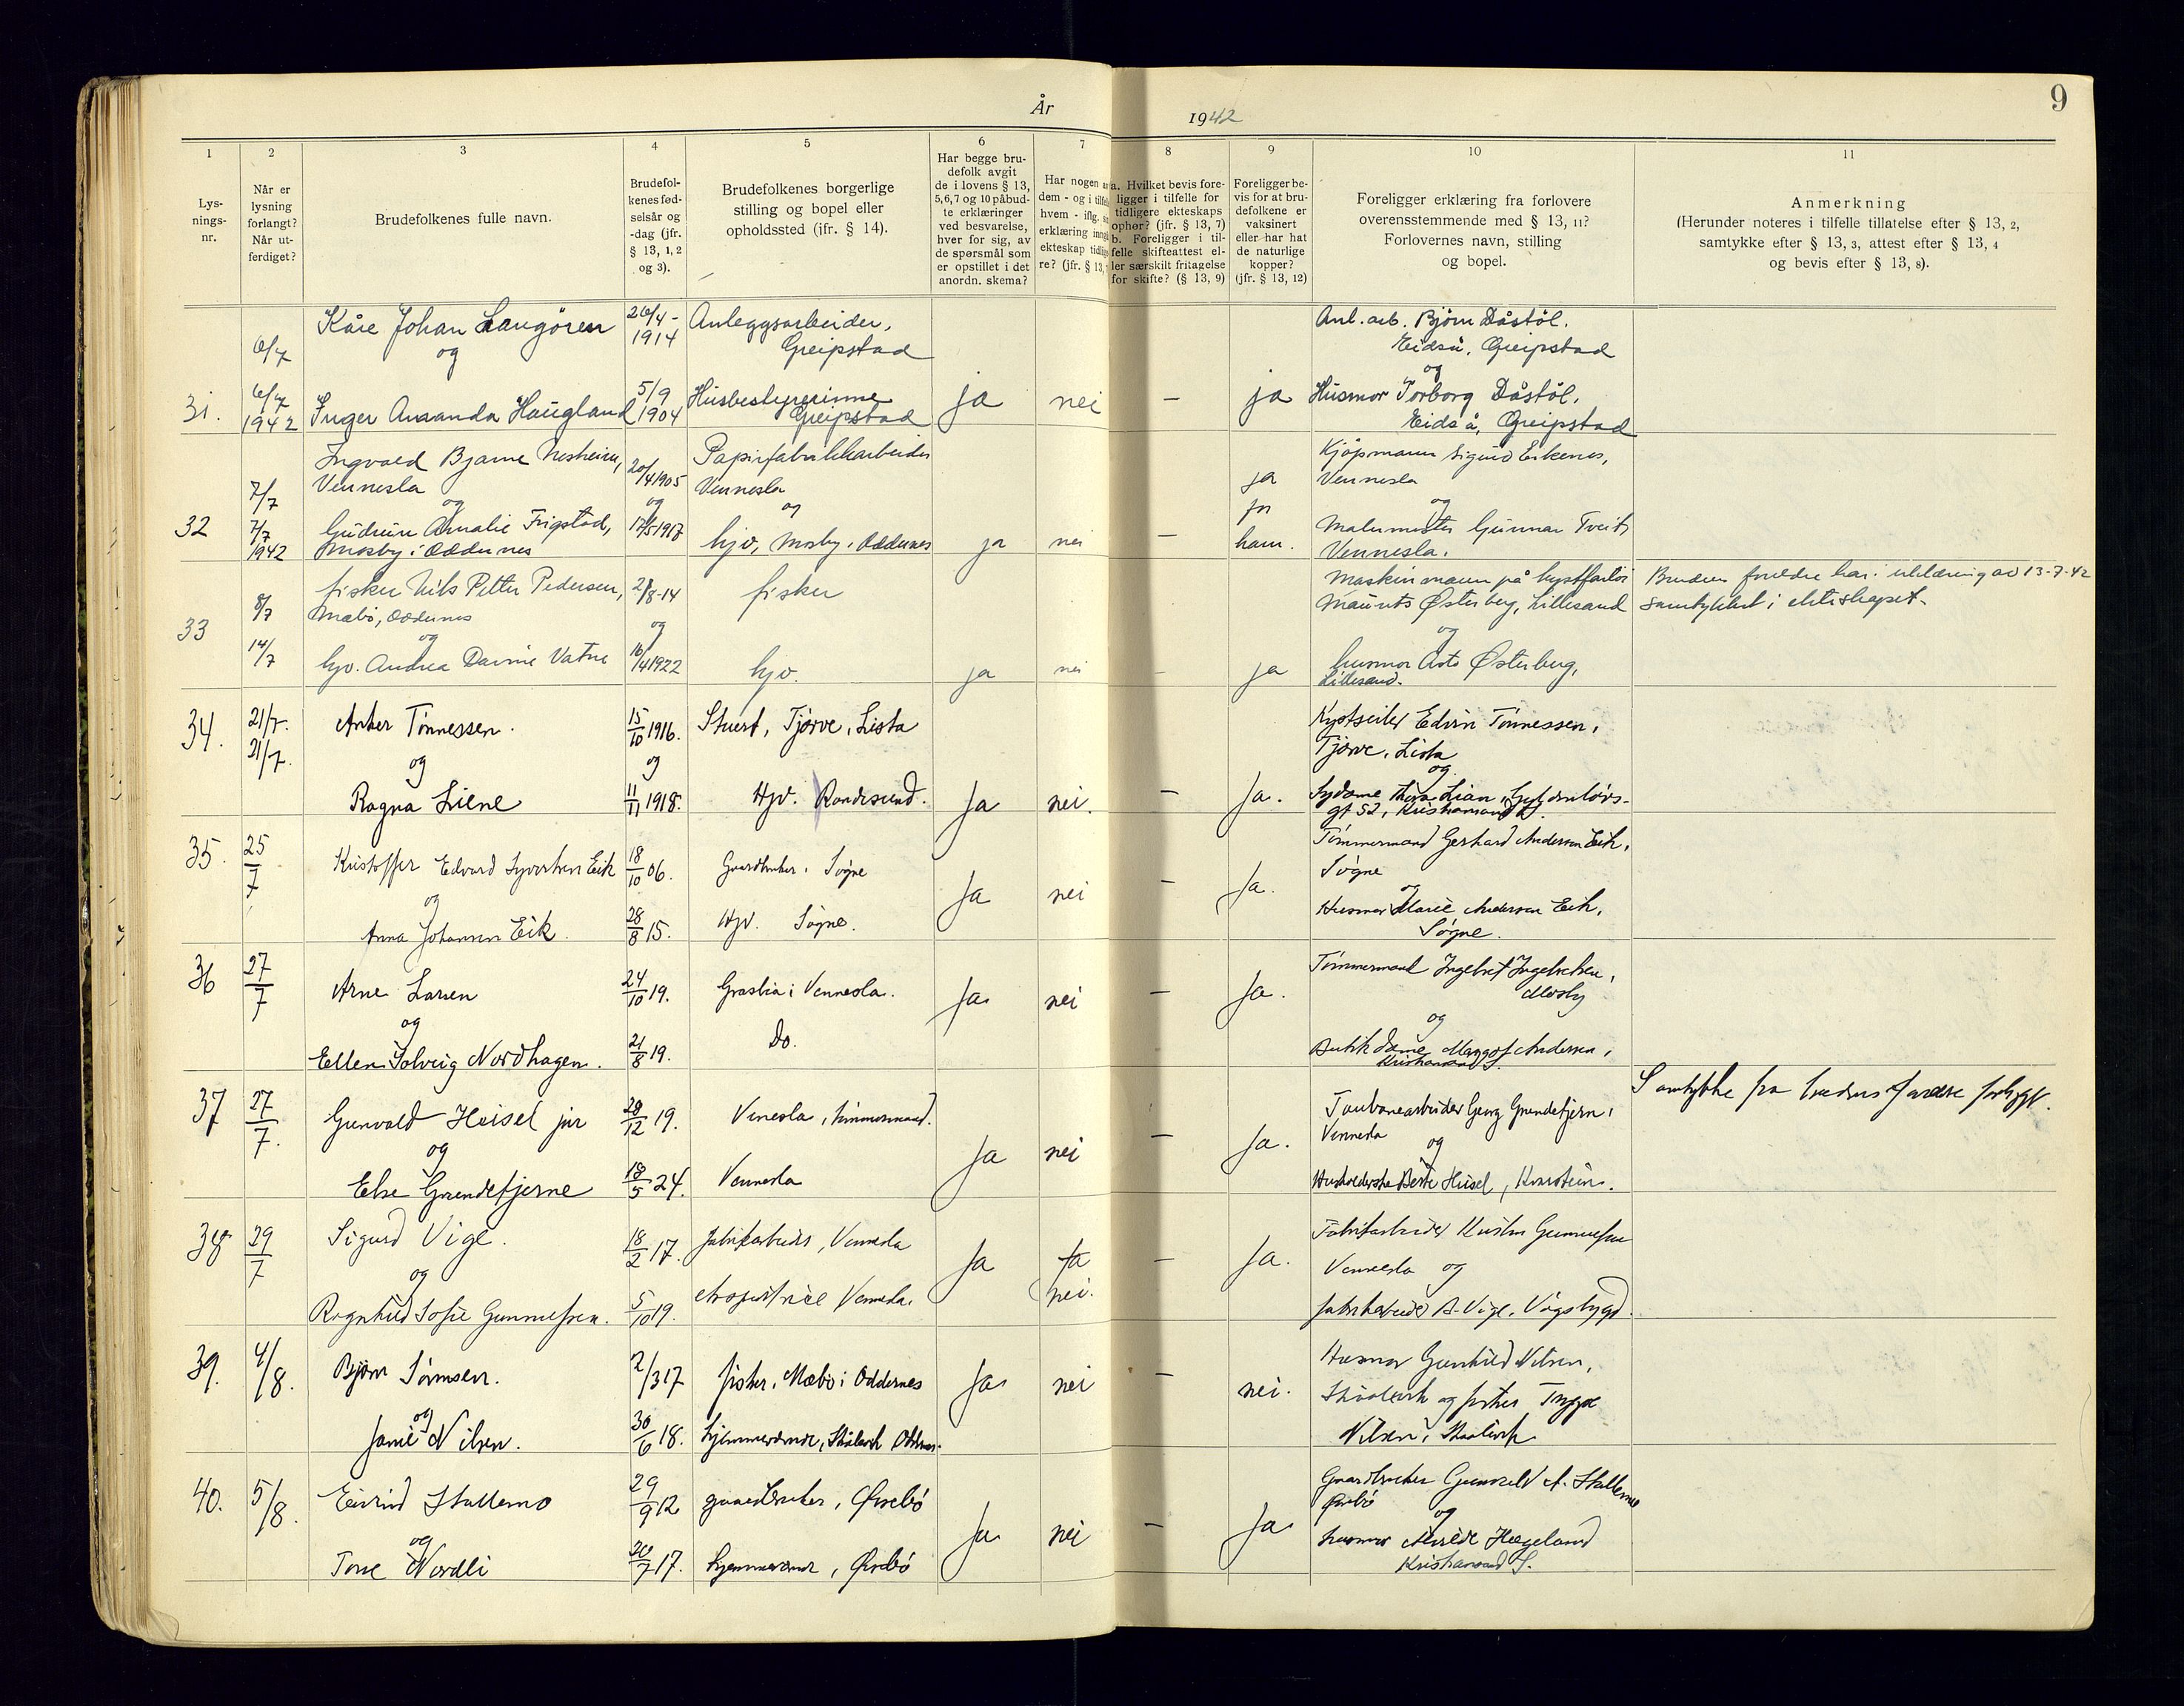 År 1942
9
1 2 3 4 5 6 7 8 9 10 11
Lys-
nings-
nr.
Når er
lysning
forlangt?
Når ut-
ferdiget?
Brudefolkenes fulle navn.
Brudefol-
kenes fød-
selsår og
-dag (jfr.
§ 13, 1, 2
og 3).
Brudefolkenes borgerlige
stilling og bopel eller
opholdssted (jfr. § 14).
Har begge bru-
defolk avgit
de i lovens § 13,
5, 6, 7 og 10 påbud-
te erklæringer
ved besvarelse,
hver for sig, av
de spørsmål som
er opstillet i det
anordn. skema?
Har nogen
dem - og i
hvem - iflg.
erklæring
ekteskap
re? (jfr. § 13,
a. Hvilket bevis fore-
ligger i tilfelle for
tidligere ekteskaps
ophør? (jfr. § 13, 7)
b. Foreligger i til-
felle skifteattest el-
ler særskilt fritagelse
for skifte? (§ 13, 9)
Foreligger be-
vis for at bru-
defolkene er
vaksinert
eller har hat
de naturlige
kopper?
(jfr. § 13, 12)
Foreligger erklæring fra forlovere
overensstemmende med § 13, 11?
Forlovernes navn, stilling
og bopel.
Anmerkning
(Herunder noteres i tilfelle tillatelse efter § 13, 2,
samtykke efter § 13, 3, attest efter § 13, 4
og bevis efter § 13, 8).
31.
6/7
6/7
1942
Kåre Johan Langören
og
Inger Amanda Haugland
26/4-
1914
5/9
1904
Anleggsarbeider,
Greipstad
Husbestyrerinne
Greipstad
ja
nei
—
ja
Anl. arb. Björn Dåstöl.
Eidså, Greipstad
og
Husmor Torborg Dåstöl.
Eidså, Greipstad
32
7/7
7/7
1942
Ingvald Bjarne Nesheim,
Vennesla
og
Gudrun Amalie Frigstad,
Mosby i Oddernes
20/4 1905
og
17/5 1917
Papirfabrikkarbeider
Vennesla
og
hjv, Mosby i Oddernes
ja
nei
—
ja
for
ham.
Kjøpmann Sigurd Eikenes,
Vennesla
og
Malermester Gunnar Tveit,
Vennesla.
33
8/7
14/7
fisker Nils Petter Pedersen,
Mæbö, Oddernes
og
hjv. Andrea Vatne
2/8-14
og
16/4 1922
fisker
hjv.
ja
nei
—
ja
Maskinmann på
Østerberg, Lillesand
og
husmor Østerberg,
Lillesand.
Brudens foreldre har i erklæring av 13-7-42
samtykket i ekteskapet.
34.
21/7.
21/7.
Anker Tönnessen.
og
Ragna Liene
15/10 1916.
og
11/11 1918.
Stuert, Tjörve, Lista
Hjv. Randesund.
Ja
nei.
—
Ja.
Edvin Tönnessen,
Tjörve, Lista
og
Sydame Thora Lian,
gt 52, Kristiansand S.
35.
25/7
Kristoffer Edvard Syvertsen Eik
og
Anna Johansen Eik.
18/10 06.
28/8 15.
Gaardbruker, Sögne
Hjv. Sögne.
Ja
nei
—
Ja.
Tömmermand Gerhard Andersen Eik,
Sögne
og
Husmor Marie Andersen Eik,
Sögne.
36
27/7
Arne Larsen
og
Ellen Solveig Nordhagen.
24/10 19.
21/8 19.
Grasbia i Vennesla.
Do.
Ja
nei
—
Ja.
Tömmermand Ingebret Ingebretsen,
Mosby
og
Butikdame Margot Andersen,
Kristiansand S.
37
27/7.
Gunvald Heisel jur
og
Else Grundetjerne
28/12 19.
18/5 24.
Vennesla, tömmermand.
Vennesla
Ja
nei
—
Ja.
Taubanearbeider Georg Grundetjern,
Vennesla
og
Husholderske Berte Heisel, Kvarstein.
Samtykke fra brudens foreldre forligger.
38
29/7
Sigurd Vige.
og
Ragnhild Sofie Gunnufsen.
18/2 17.
5/10 19.
fabrikarbeider, Vennesla
Vennesla.
Ja
Ja
nei.
—
Ja.
Fabrikarbeider Gunnufsen
Vennesla og
fabrikarbeider A. Vige, Vågsbygd.
39.
4/8.
Björn Sörmsen.
og
Janie Nilsen.
2/3 17
30/6 18.
fisker, Mæbö i Oddernes
hjemmeværende, Skålevik Oddernes.
Ja
nei
—
nei.
Husmor Gunhild Nilsen,
Skålevik og fisker Trygve
Nilsen, Skålevik
40.
5/8.
Eivind Stallemo
og
Tone Nordli
29/9 12
20/7 17.
gaardbruker, Øvrebö
hjemmeværende, Øvrebö
Ja
nei
—
Ja
Gaardbruker Gunvald A. Stallemo
Øvrebö
og
husmor Hægeland
Kristiansand S.